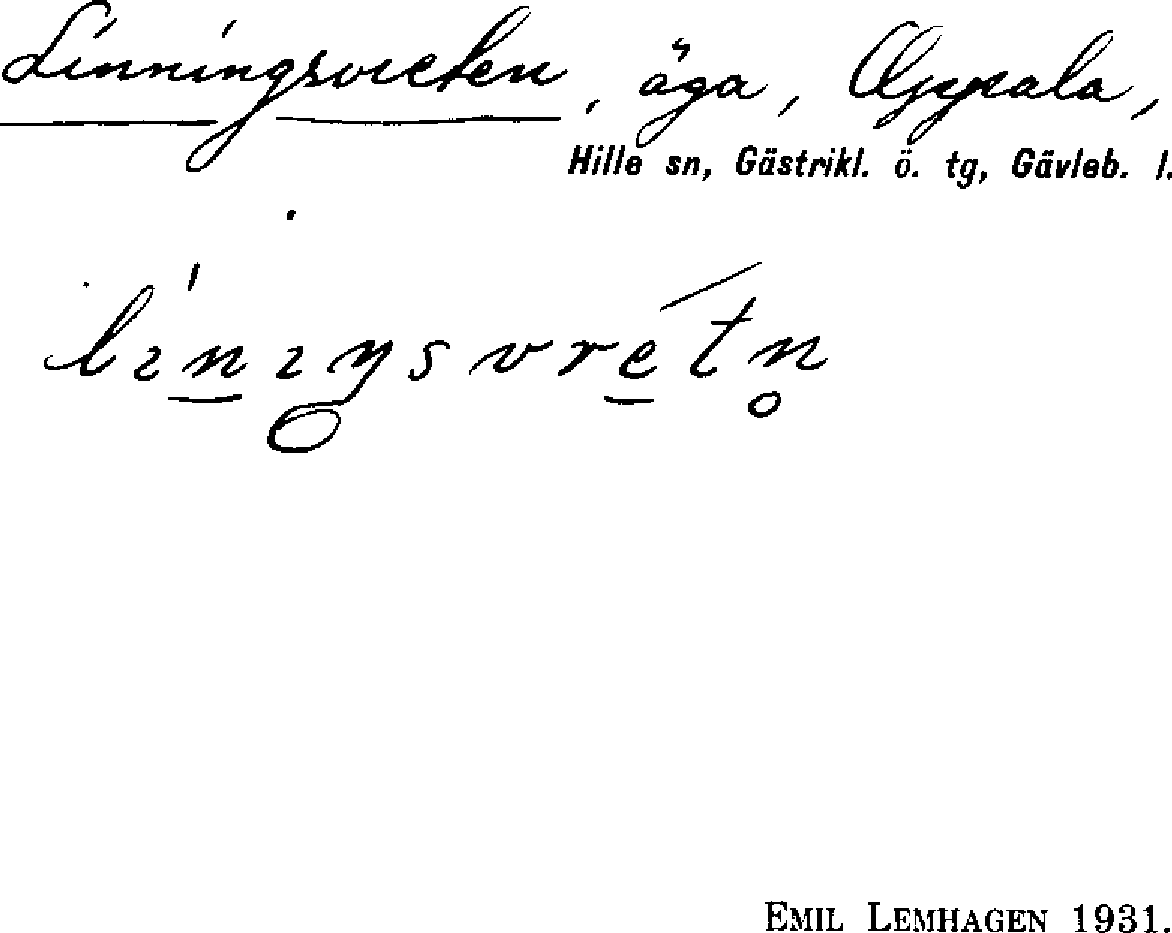 Linningsvreten, äga, Oppala,
Hille sn, Gästrikl. ö. tg, Gävleb. l.
lınıŋsvretn̥
EMIL LEMHAGEN 1931.